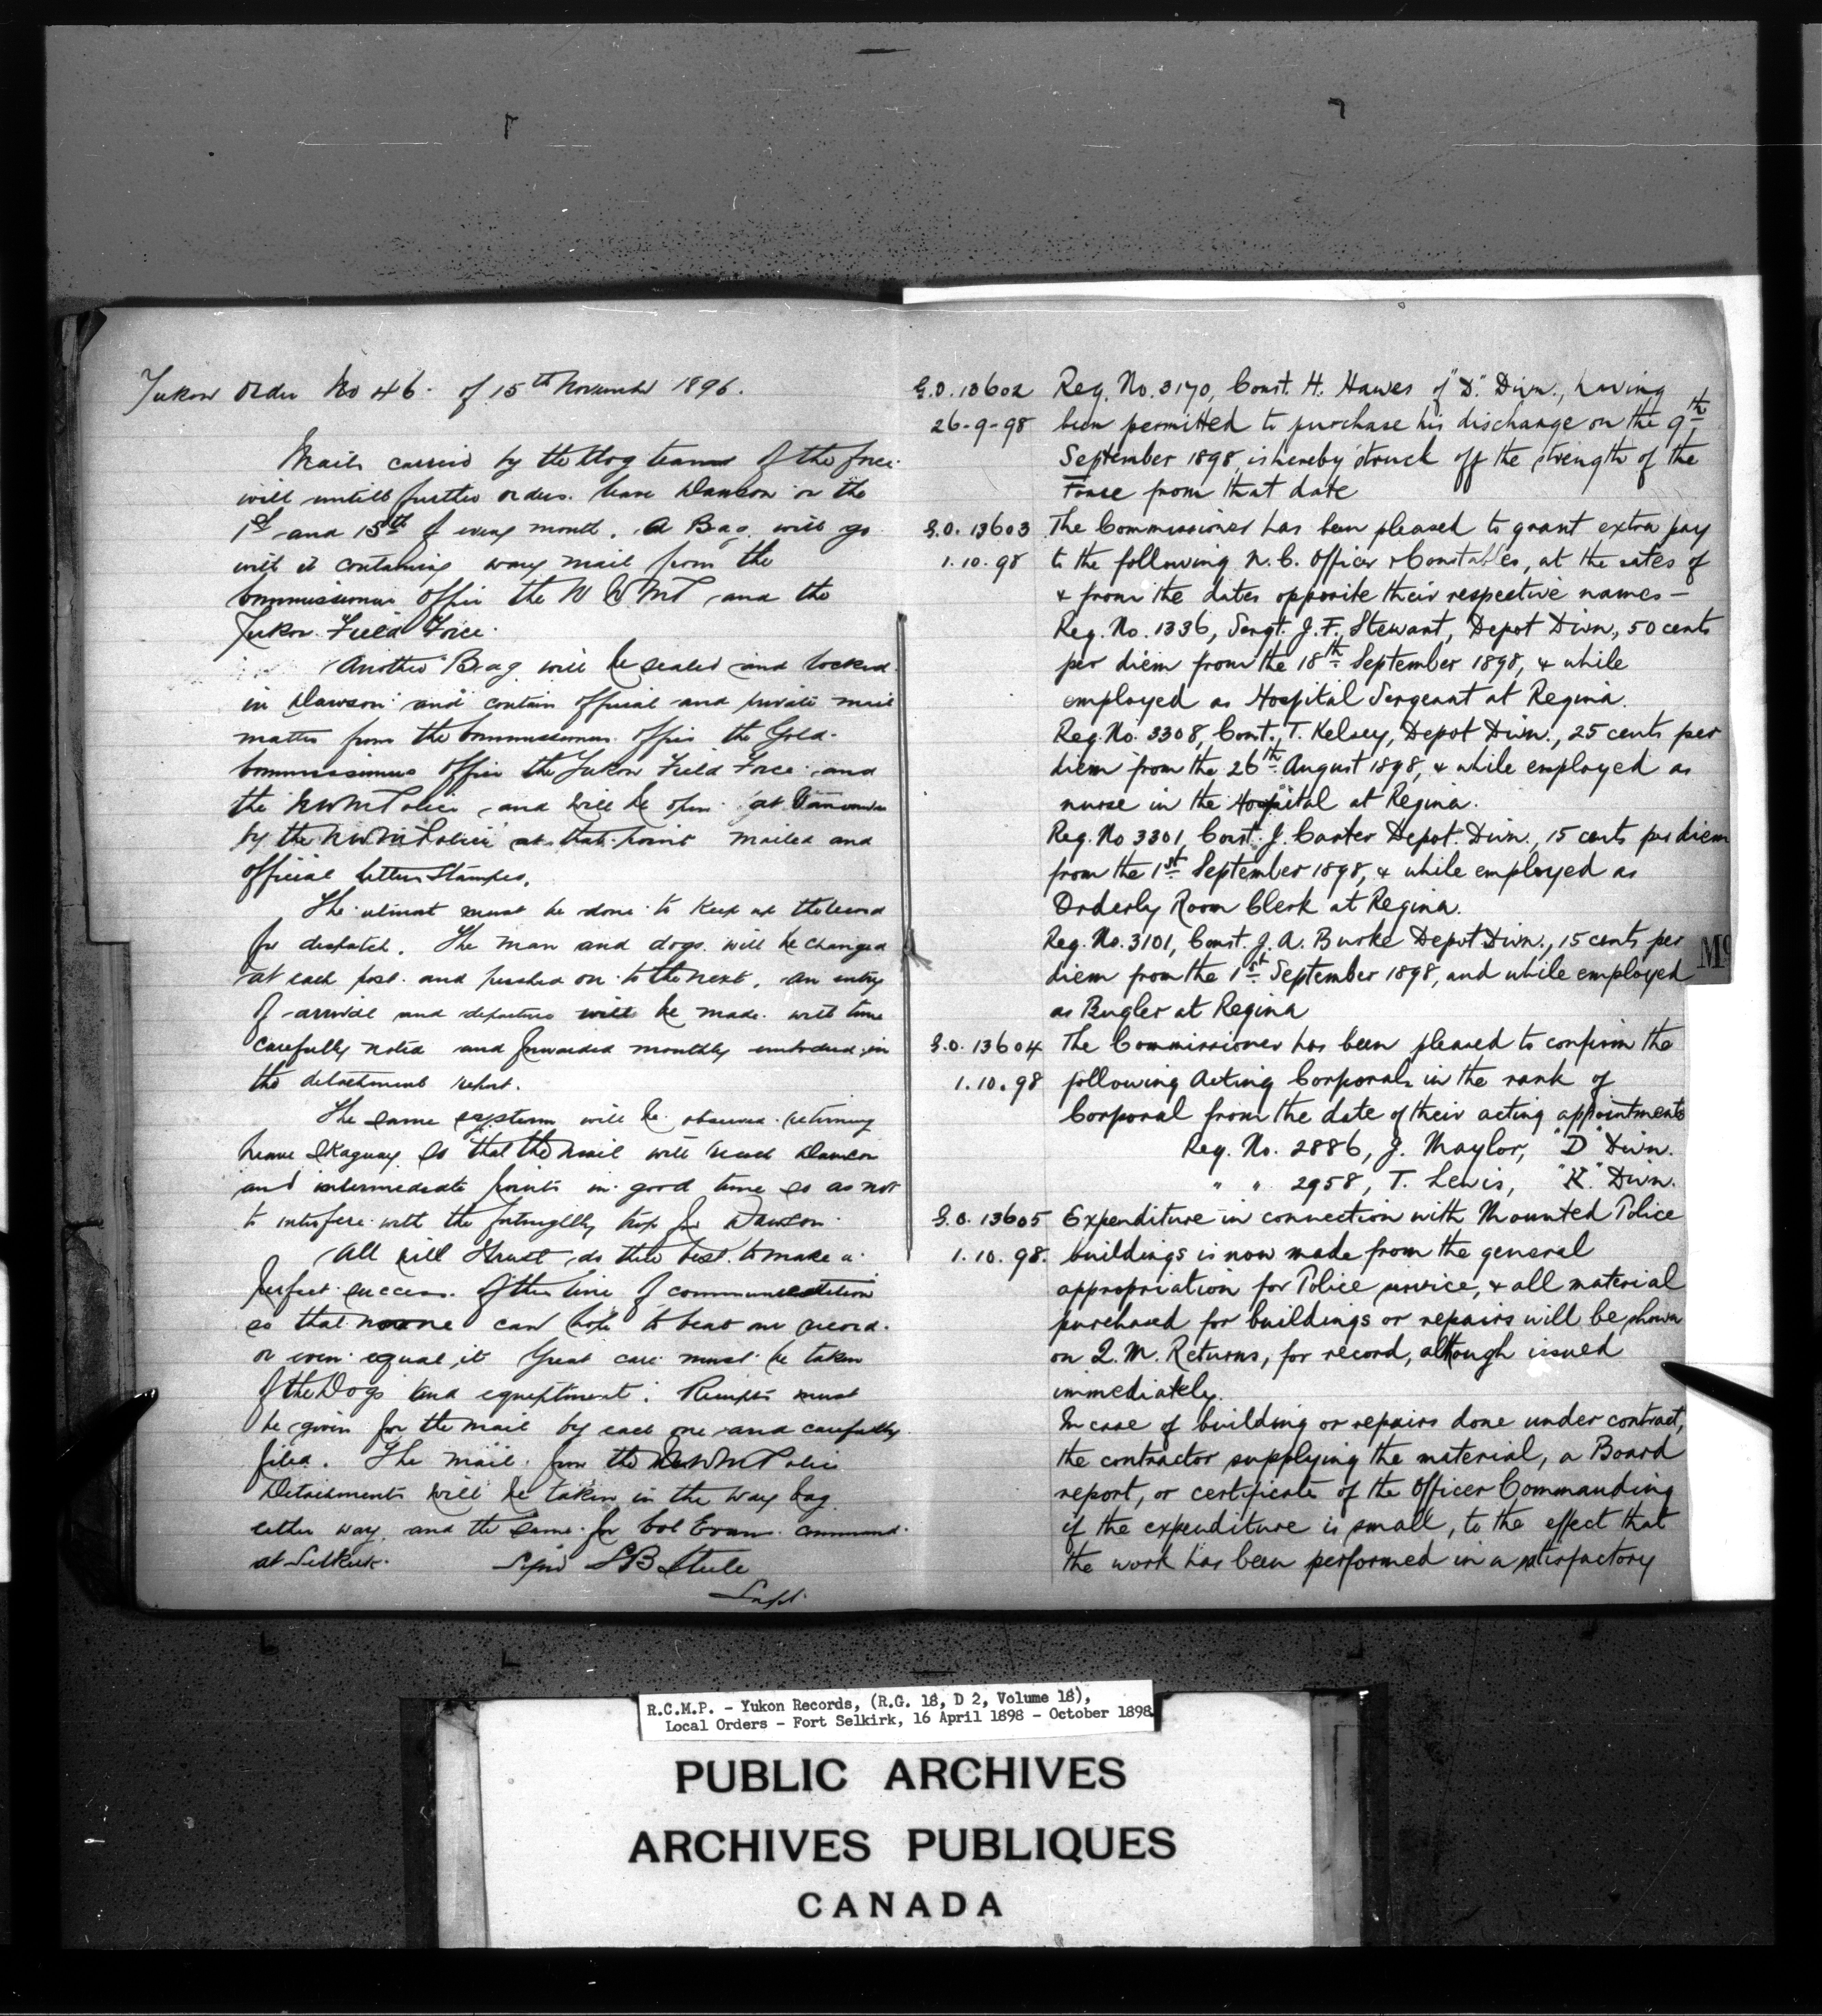 Yukon Order No 46. of 15th November 1896.
Mails carried by the Dog teams of the force
will untill further orders. leave Dawson on the
1st and 15th of every month. A Bag will go
with it containing way mail from the
Commissioners Office the N W M P and the
Yukon Field Force.
Another Bag will be sealed and locked
in Dawson and contain official and private mail
matter from the Commissioners Office the Gold
Commissioners Office the Yukon Field Force and
the N W M Police and will be open at
by the N W M Police at that point mailed and
official letters stamped.
The utmost must be done to keep up the record
for despatch. The man and dogs will be changed
at each post and pushed on to the next. An entry
of arrival and departure will be made with time
carefully noted and forwarded monthly embodied in
the detachment report.
The same system will be observed returning
leave Skaguay so that the mail will reach Dawson
and intermediate points in good time so as not
to interfere with the fortnightly trip for Dawson
All will I trust do their best to make a
perfect success. of this line of communication
so that no one can hope to beat our record
or even equal it Great care must be taken
of the Dogs and equiptment. Receipts must
be given for the mail by each one and carefully
filed. The mail for the N W M Police
Detachments will be taken in the way bag
either way, and the same for Col Evans command
at Selkirk. Signd S B Steele
Supt.
G.O. 13602 Reg. No. 3170, Const. H. Hawes of "D" Divn., having
26-9-98 been permitted to purchase his discharge on the 9th
September 1898, is hereby struck off the strength of the
Force from that date
G.O. 13603 The Commissioner has been pleased to grant extra pay
1.10.98 to the following N.C. Officer & Constables, at the rates of
& from the dates opposite their respective names —
Reg. No. 1336, Sergt. J. F. Stewart, Depot Divn., 50 cents
per diem from the 18th September 1898, & while
employed as Hospital Sergeant at Regina.
Reg. No. 3308, Const. T. Kelsey, Depot Divn., 25 cents per
diem from the 26th August 1898, & while employed as
nurse in the Hospital at Regina.
Reg. No 3301, Const. J. Carter Depot. Divn., 15 cents per diem
from the 1st September 1898, & while employed as
Orderly Room Clerk at Regina.
Reg. No. 3101, Const. J. A. Burke Depot Divn., 15 cents per
diem from the 1st September 1898, and while employed
as Bugler at Regina
G.O. 13604 The Commissioner has been pleased to confirm the
1.10.98 following Acting Corporals in the rank of
Corporal from the date of their acting appointments
Reg. No. 2886, J. Maylor, "D" Divn.
" " 2958, T. Lewis, "K" Divn.
G.O. 13605 Expenditure in connection with Mounted Police
1.10.98. buildings is now made from the general
appropriation for Police service, & all material
purchased for buildings or repairs will be shown
on Q.M. Returns, for record, although issued
immediately.
In case of building or repairs done under contract,
the contractor supplying the material, a Board
report, or certificate of the Officer Commanding
if the expenditure is small, to the effect that
the work has been performed in a satisfactory
R.C.M.P. - Yukon Records, (R.G. 18, D 2, Volume 18),
Local Orders - Fort Selkirk, 16 April 1898 - October 1898
PUBLIC ARCHIVES
ARCHIVES PUBLIQUES
CANADA